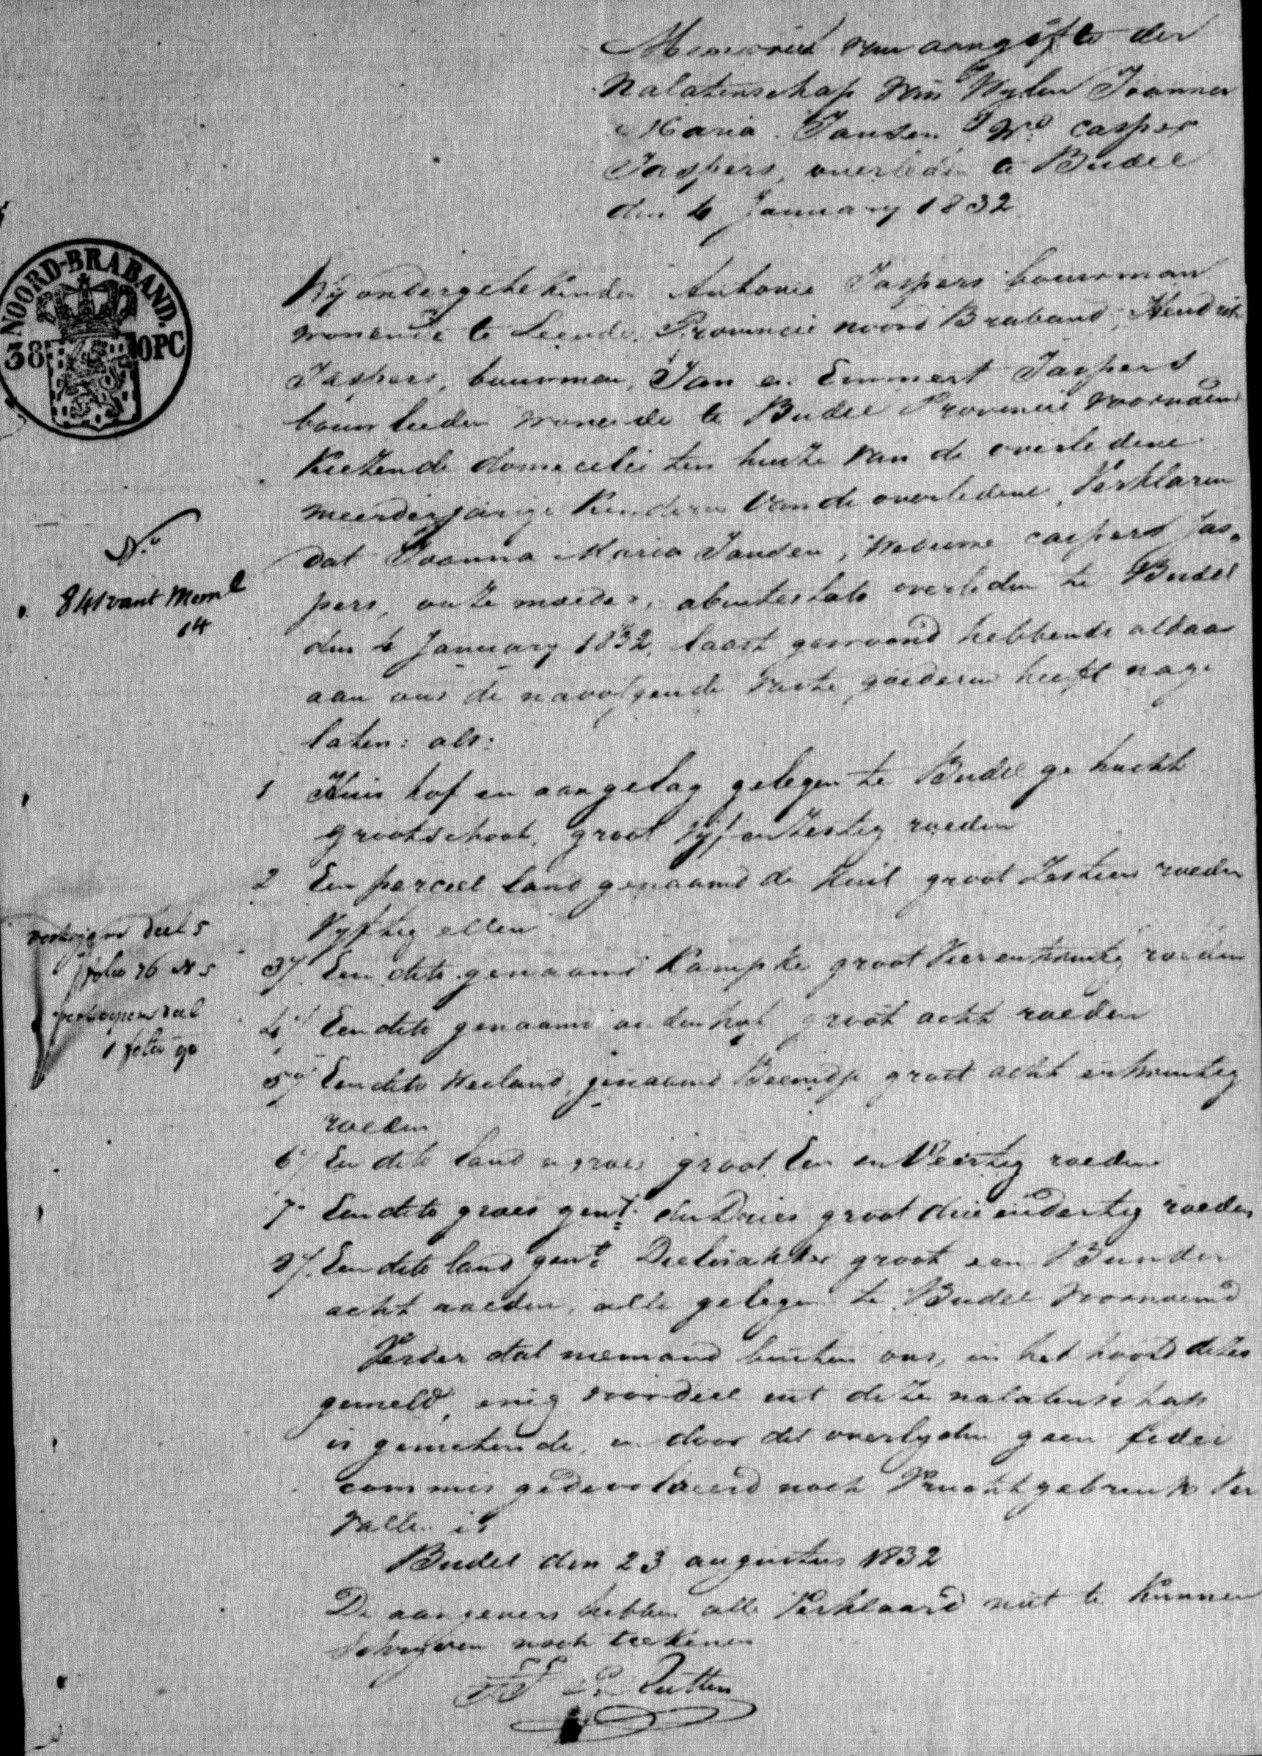 Memorie van aangifte der
Nalatenschap van Wylen Joanna
Maria Jansen Wd. casper
Jaspers, overleden te Budel
den 4 January 1832
NOORD-BRABAND.
38 OPC
Wij ondergetekenden Antonie Jaspers bouwman
wonende te Leende, Provincie noord Braband, Hendrik
Jaspers, bouwman, Jan en Emmert Jaspers
bouwlieden wonende te Budel Provincie voornoemd
Kiezende domicilie ten huize van de overledene
meerderjarige Kinderen van de overledene, Verklaren
dat Joanna Maria Jansen, weduwe caspers Jas-
pers, onze moeder, abintestato overleden te Budel
den 4 January 1832, laast gewoond hebbende aldaar
aan ons de navolgende vaste goederen heeft nage
laten: als:
No
841 vant Meml
14
1 Huis hof en aangelag gelegen te Budel gehucht
grootschoot, groot vijf en zestig roeden
2 Een perceel land genaamd de Kuil groot Zestien roeden
Vyftig ellen
3e/ Een dito genaamd Kampke groot Vierentwintig roeden
4e/ Een dito genaamd groot acht roeden
5e/ Een dito Heiland, genaamd groot acht entwintig
roeden
6e/ Een dito land en groes groot Een en Veertig roeden
7- Een dito groes gent. den Dries groot drie en dertig roeden
8e/. Een dito land gent. groot een Bunder
acht roeden, alle gelegen te Budel voornoemd
deel 5
folio 76 N 5
deel
1 folio 90
Verder dat niemand buiten ons, in het hoofd dezes
gemeld, enig voordeel uit deze nalatenschap
is genietende, en door dit overlyden geen fidei
commis gedevolveerd noch Vruchtgebruik Ver
vallen is
Budel den 23 augustus 1832
De aangevers hebben alle Verklaard niet te Kunnen
Schryven noch teekenen
Rutten